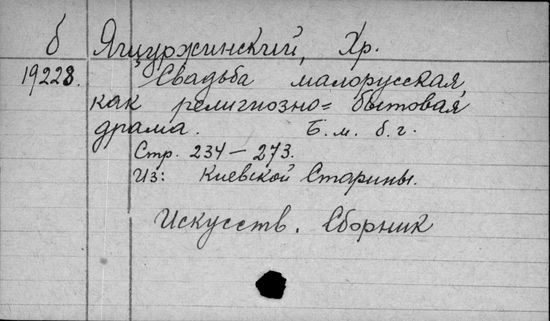 б Ящуржинский, Хр.
19228. Свадьба малорусская,
как религиозно=бытовая
драма. Б. м. б. г.
Стр. 234–273.
Из: Киевской Старины.
Искусств. Сборник